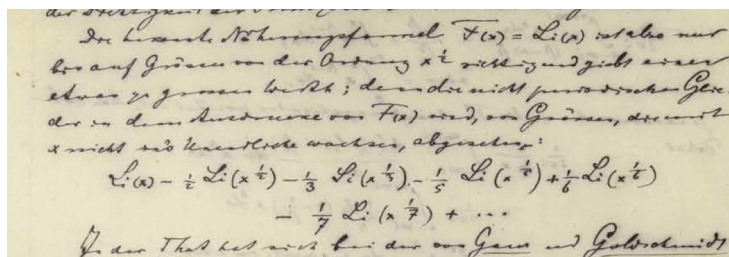 Die bekannte Näherungsformel F(x) = Li(x) ist also nur
bis auf Grössen von der Ordnung x^½ richtig und giebt einen
etwas zu grossen Werth; denn die nicht periodischen Glie-
der in dem Ausdrucke von F(x) sind, von Grössen, die mit
x nicht in's Unendliche wachsen, abgesehen:
Li(x) − ½ Li(x^½) − ⅓ Li(x^⅓) − ⅕ Li(x^⅕) + ⅙ Li(x^⅙)
− 1/7 Li(x^1/7) + ...
In der That hat sich bei der von Gauss und Goldschmidt